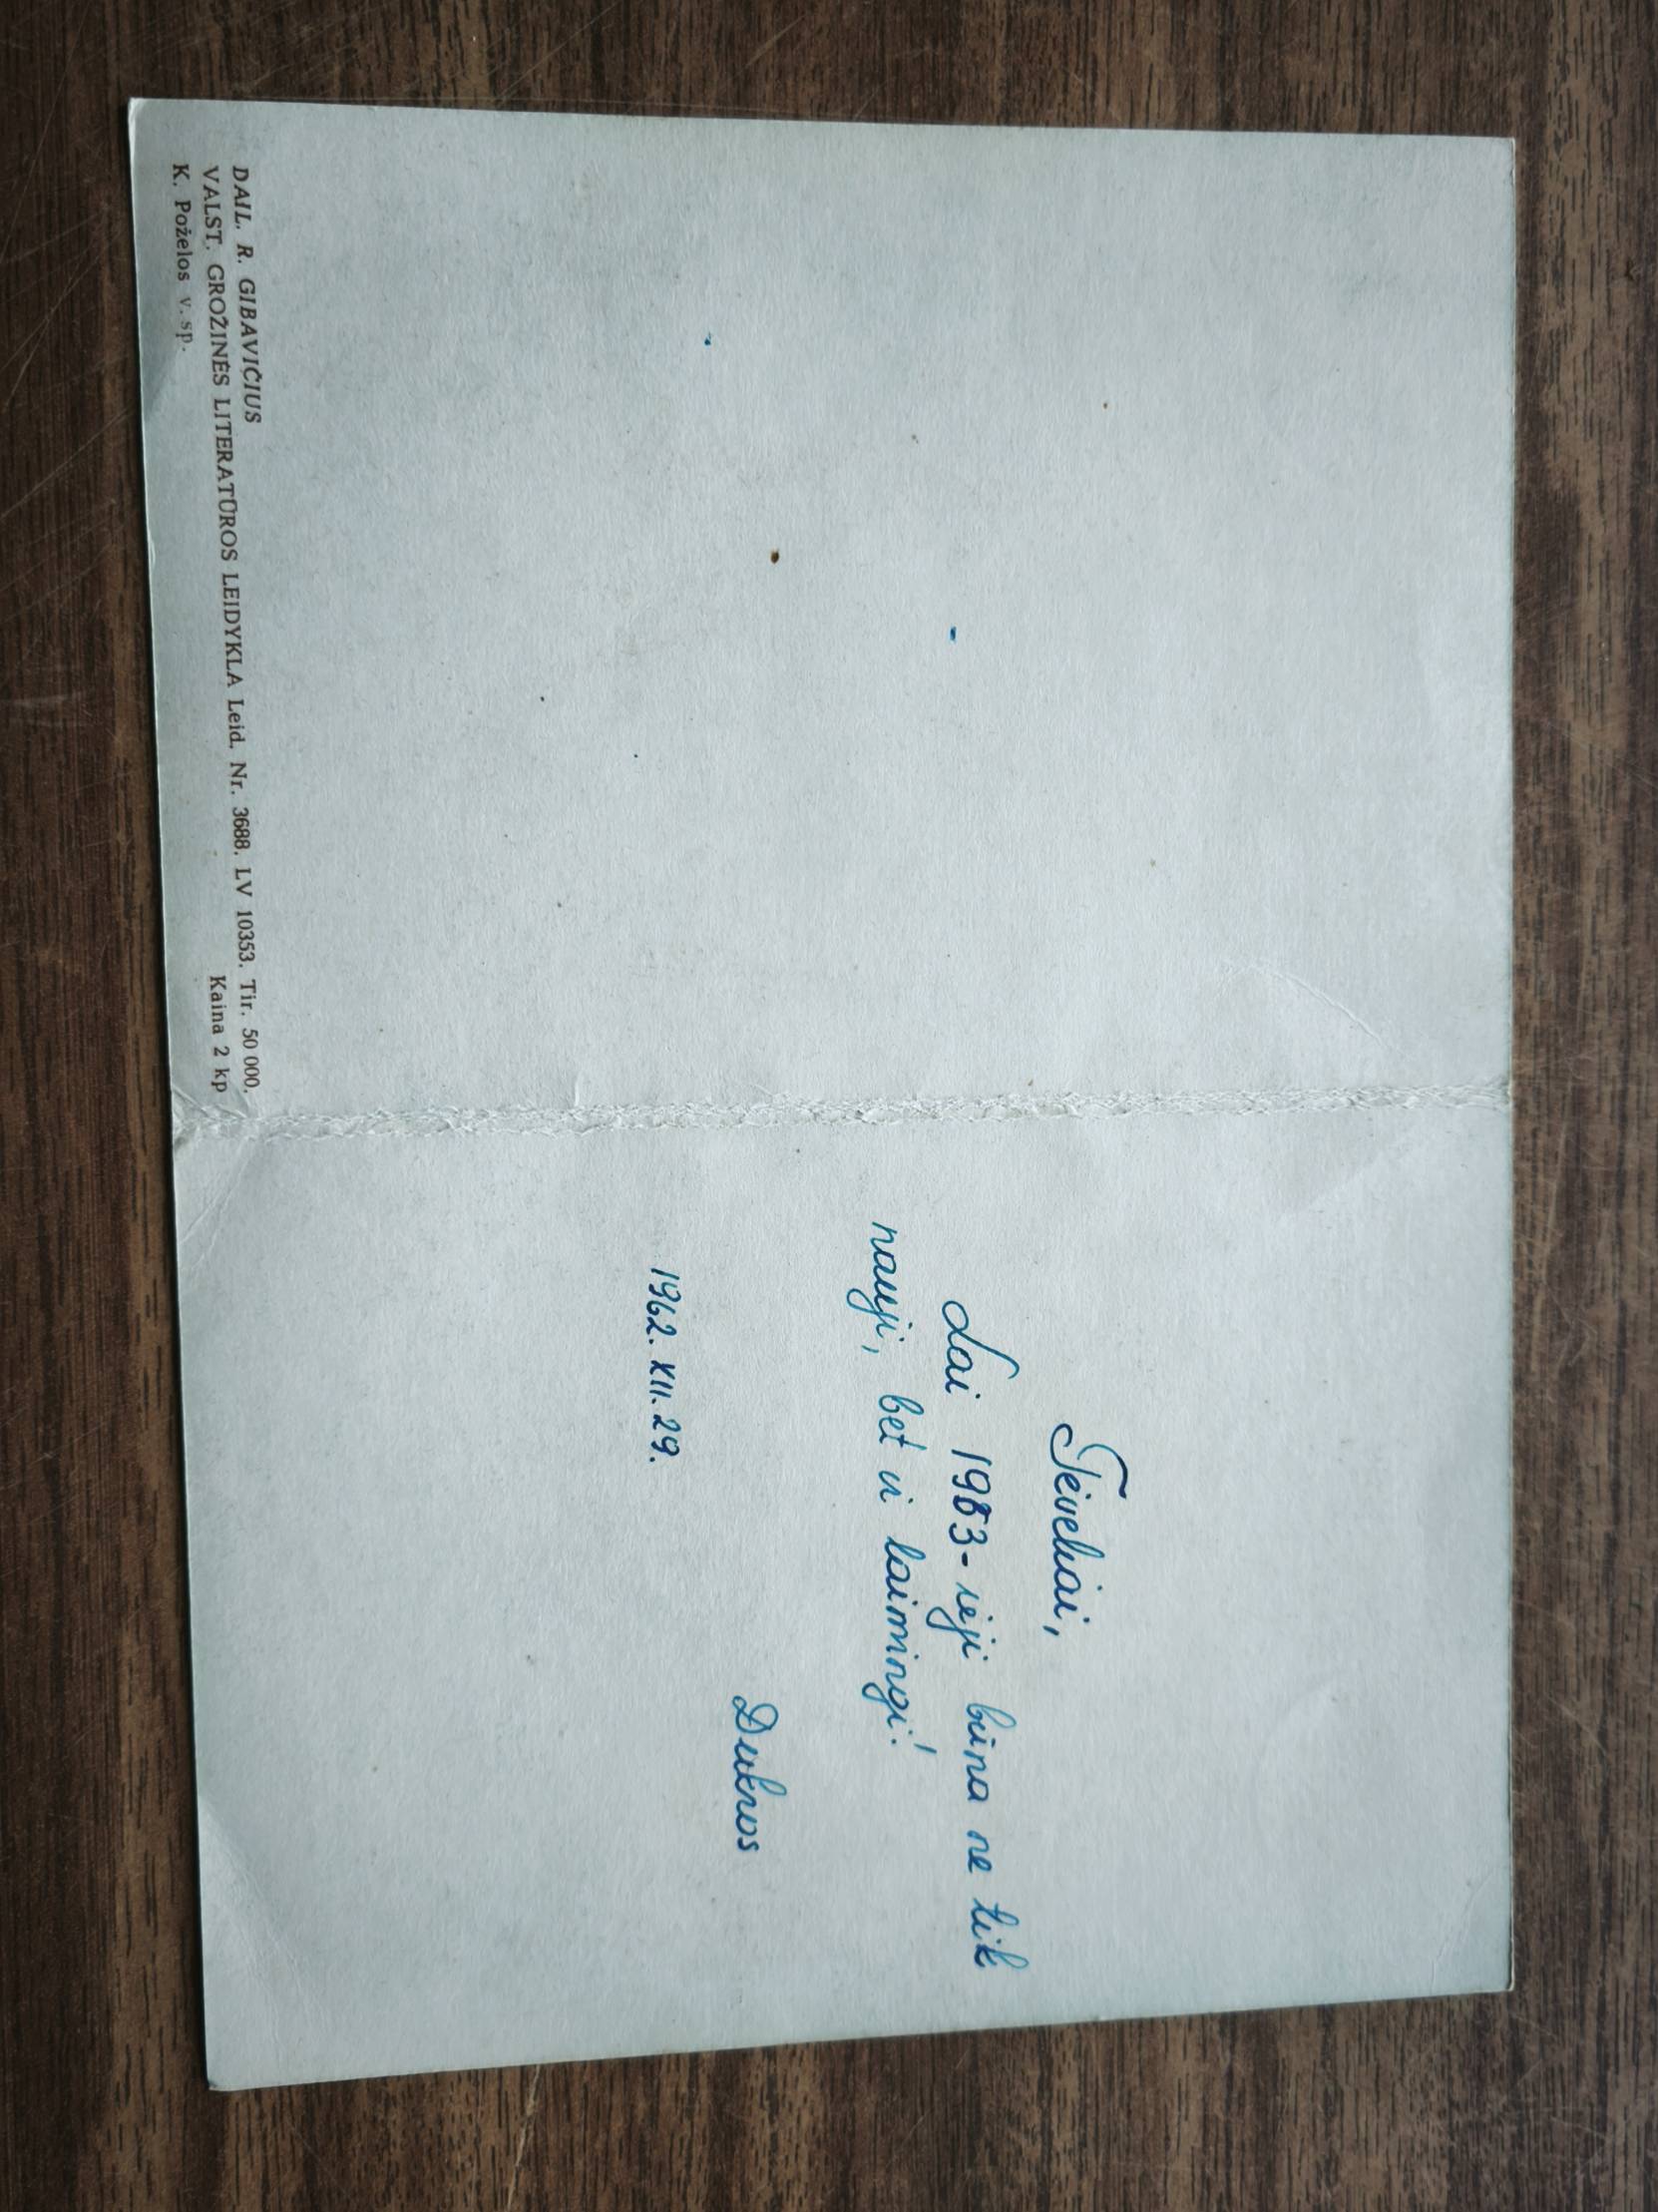 DAIL. R. GIBAVIČIUS
VALST. GROŽINĖS LITERATŪROS LEIDYKLA Leid. Nr. 3688. LV 10353. Tir. 50 000.
K. Poželos v. sp. Kaina 2 kp
Tėveliai,
Lai 1963-ieji būna ne tik
nauji, bet ir laimingi!
Dukros
1962. XII. 29.